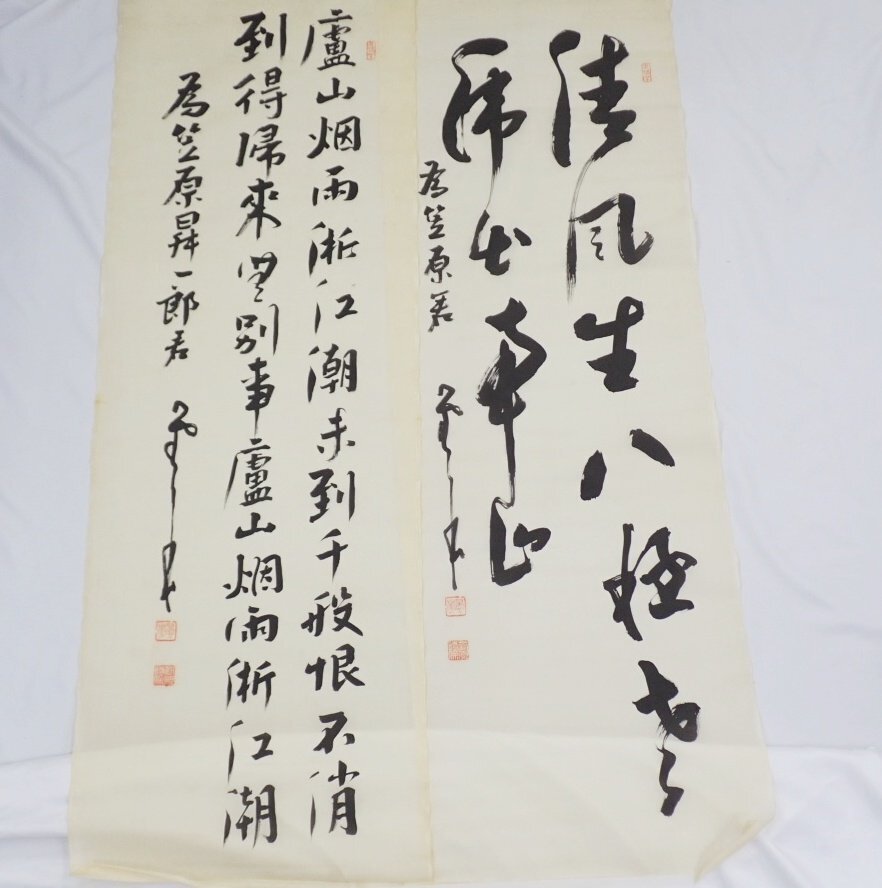 清風生八極老
出山
為笠原君
廬山烟雨浙江潮未到千般恨不消
到得帰來無別事廬山烟雨浙江潮
為笠原昇一郎君